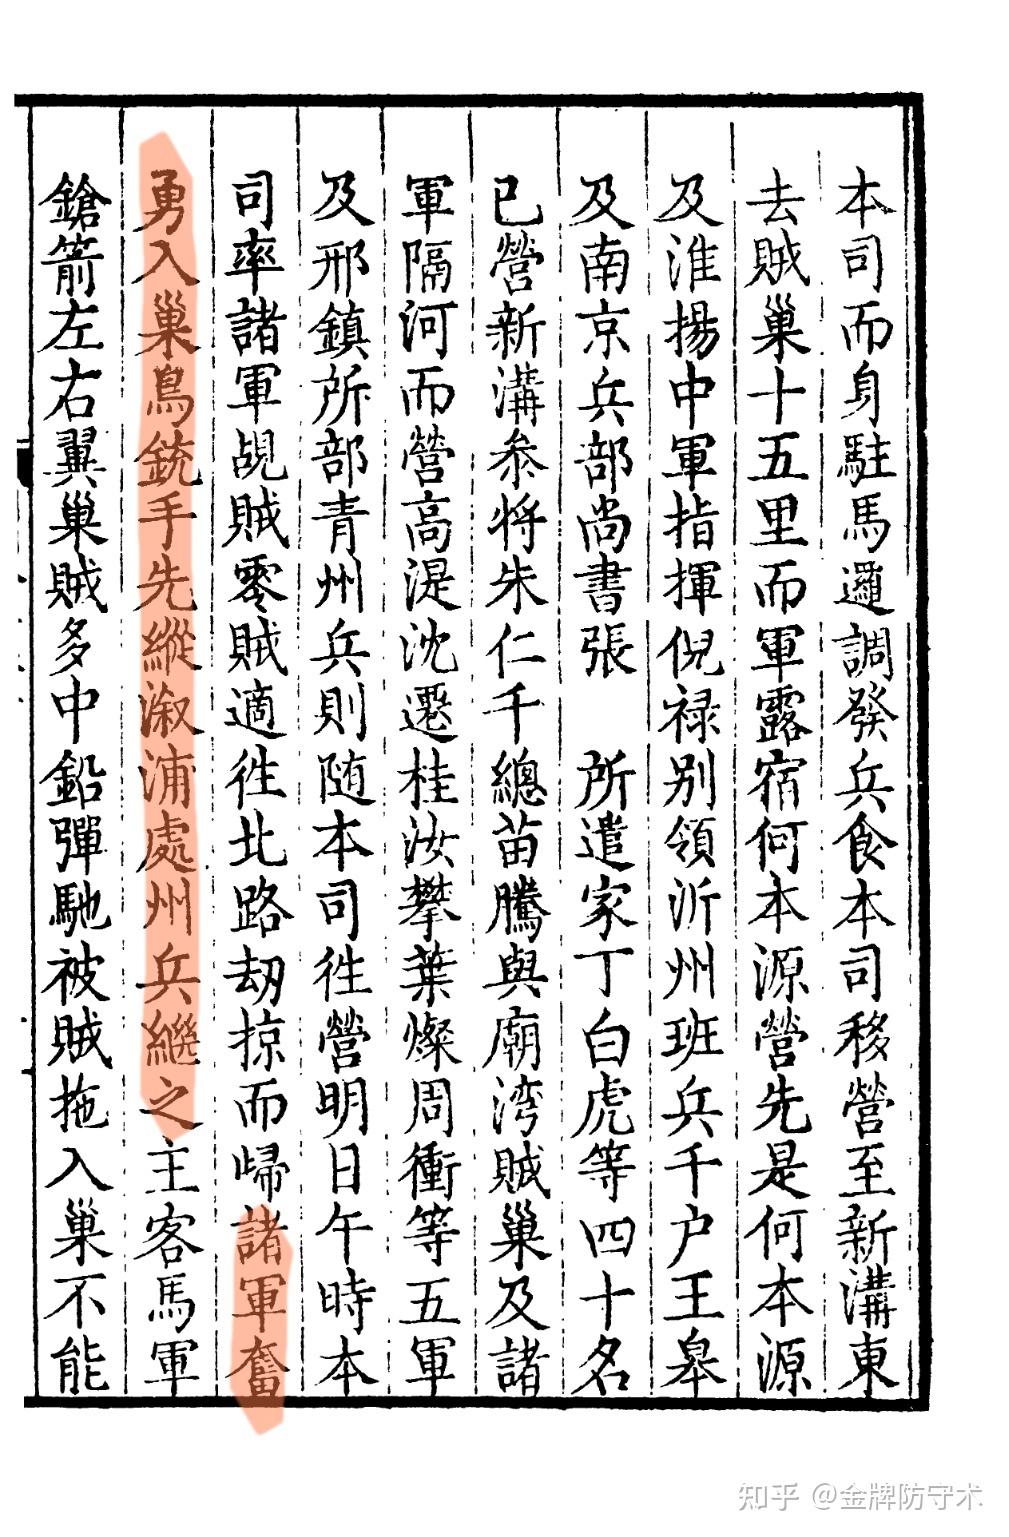 本司而身駐馬邏調發兵食本司移營至新溝東
去賊巢十五里而軍露宿何本源營先是何本源
及淮揚中軍指揮倪祿别領沂州班兵千户王皋
及南京兵部尚書張　所遣家丁白虎等四十名
已營新溝叅將朱仁千總苗騰與廟湾賊巢及諸
軍隔河而營高湜沈遷桂汝攀葉燦周衝等五軍
及邢鎮所部青州兵則随本司徃營明日午時本
司率諸軍覘賊零賊適徃北路刼掠而歸諸軍奮
勇入巢鳥銃手先縱溆浦處州兵繼之主客馬軍
鎗箭左右翼巢賊多中鉛彈馳被賊拖入巢不能
知乎 @金牌防守术